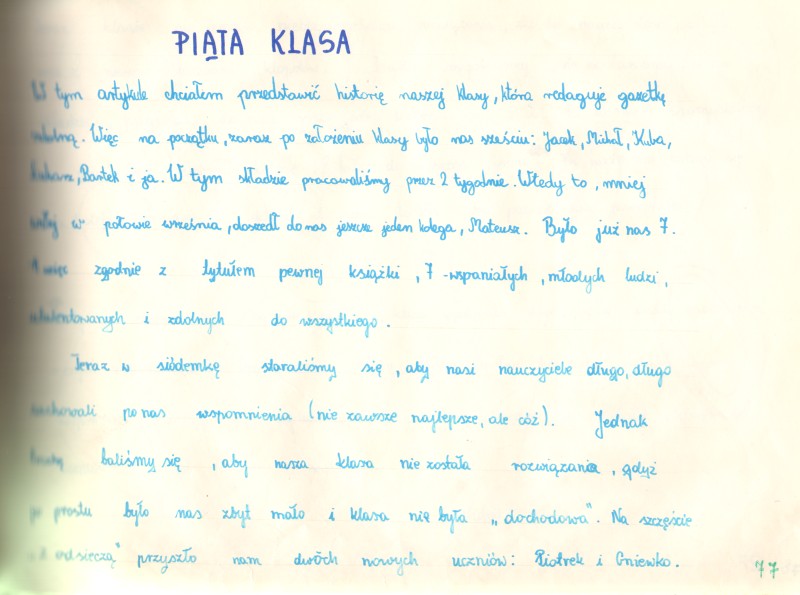 PIĄTA KLASA
W tym artykule chciałem przedstawić historię naszej klasy, która redaguje gazetkę
szkolną. Więc na początku, zaraz po założeniu klasy było nas sześciu: Jacek, Michał, Kuba,
Łukasz, Bartek i ja. W tym składzie pracowaliśmy przez 2 tygodnie. Wtedy to, mniej
więcej w połowie września, doszedł do nas jeszcze jeden kolega, Mateusz. Było już nas 7.
A więc zgodnie z tytułem pewnej książki, 7-wspaniałych, młodych ludzi,
utalentowanych i zdolnych do wszystkiego.
Teraz w siódemkę staraliśmy się, aby nasi nauczyciele długo, długo
zachowali po nas wspomnienia (nie zawsze najlepsze, ale cóż). Jednak
baliśmy się, aby nasza klasa nie została rozwiązania, gdyż
po prostu było nas zbyt mało i klasa nie była „dochodowa". Na szczęście
odsieczą" przyszło nam dwóch nowych uczniów: Piotrek i Gniewko.
77